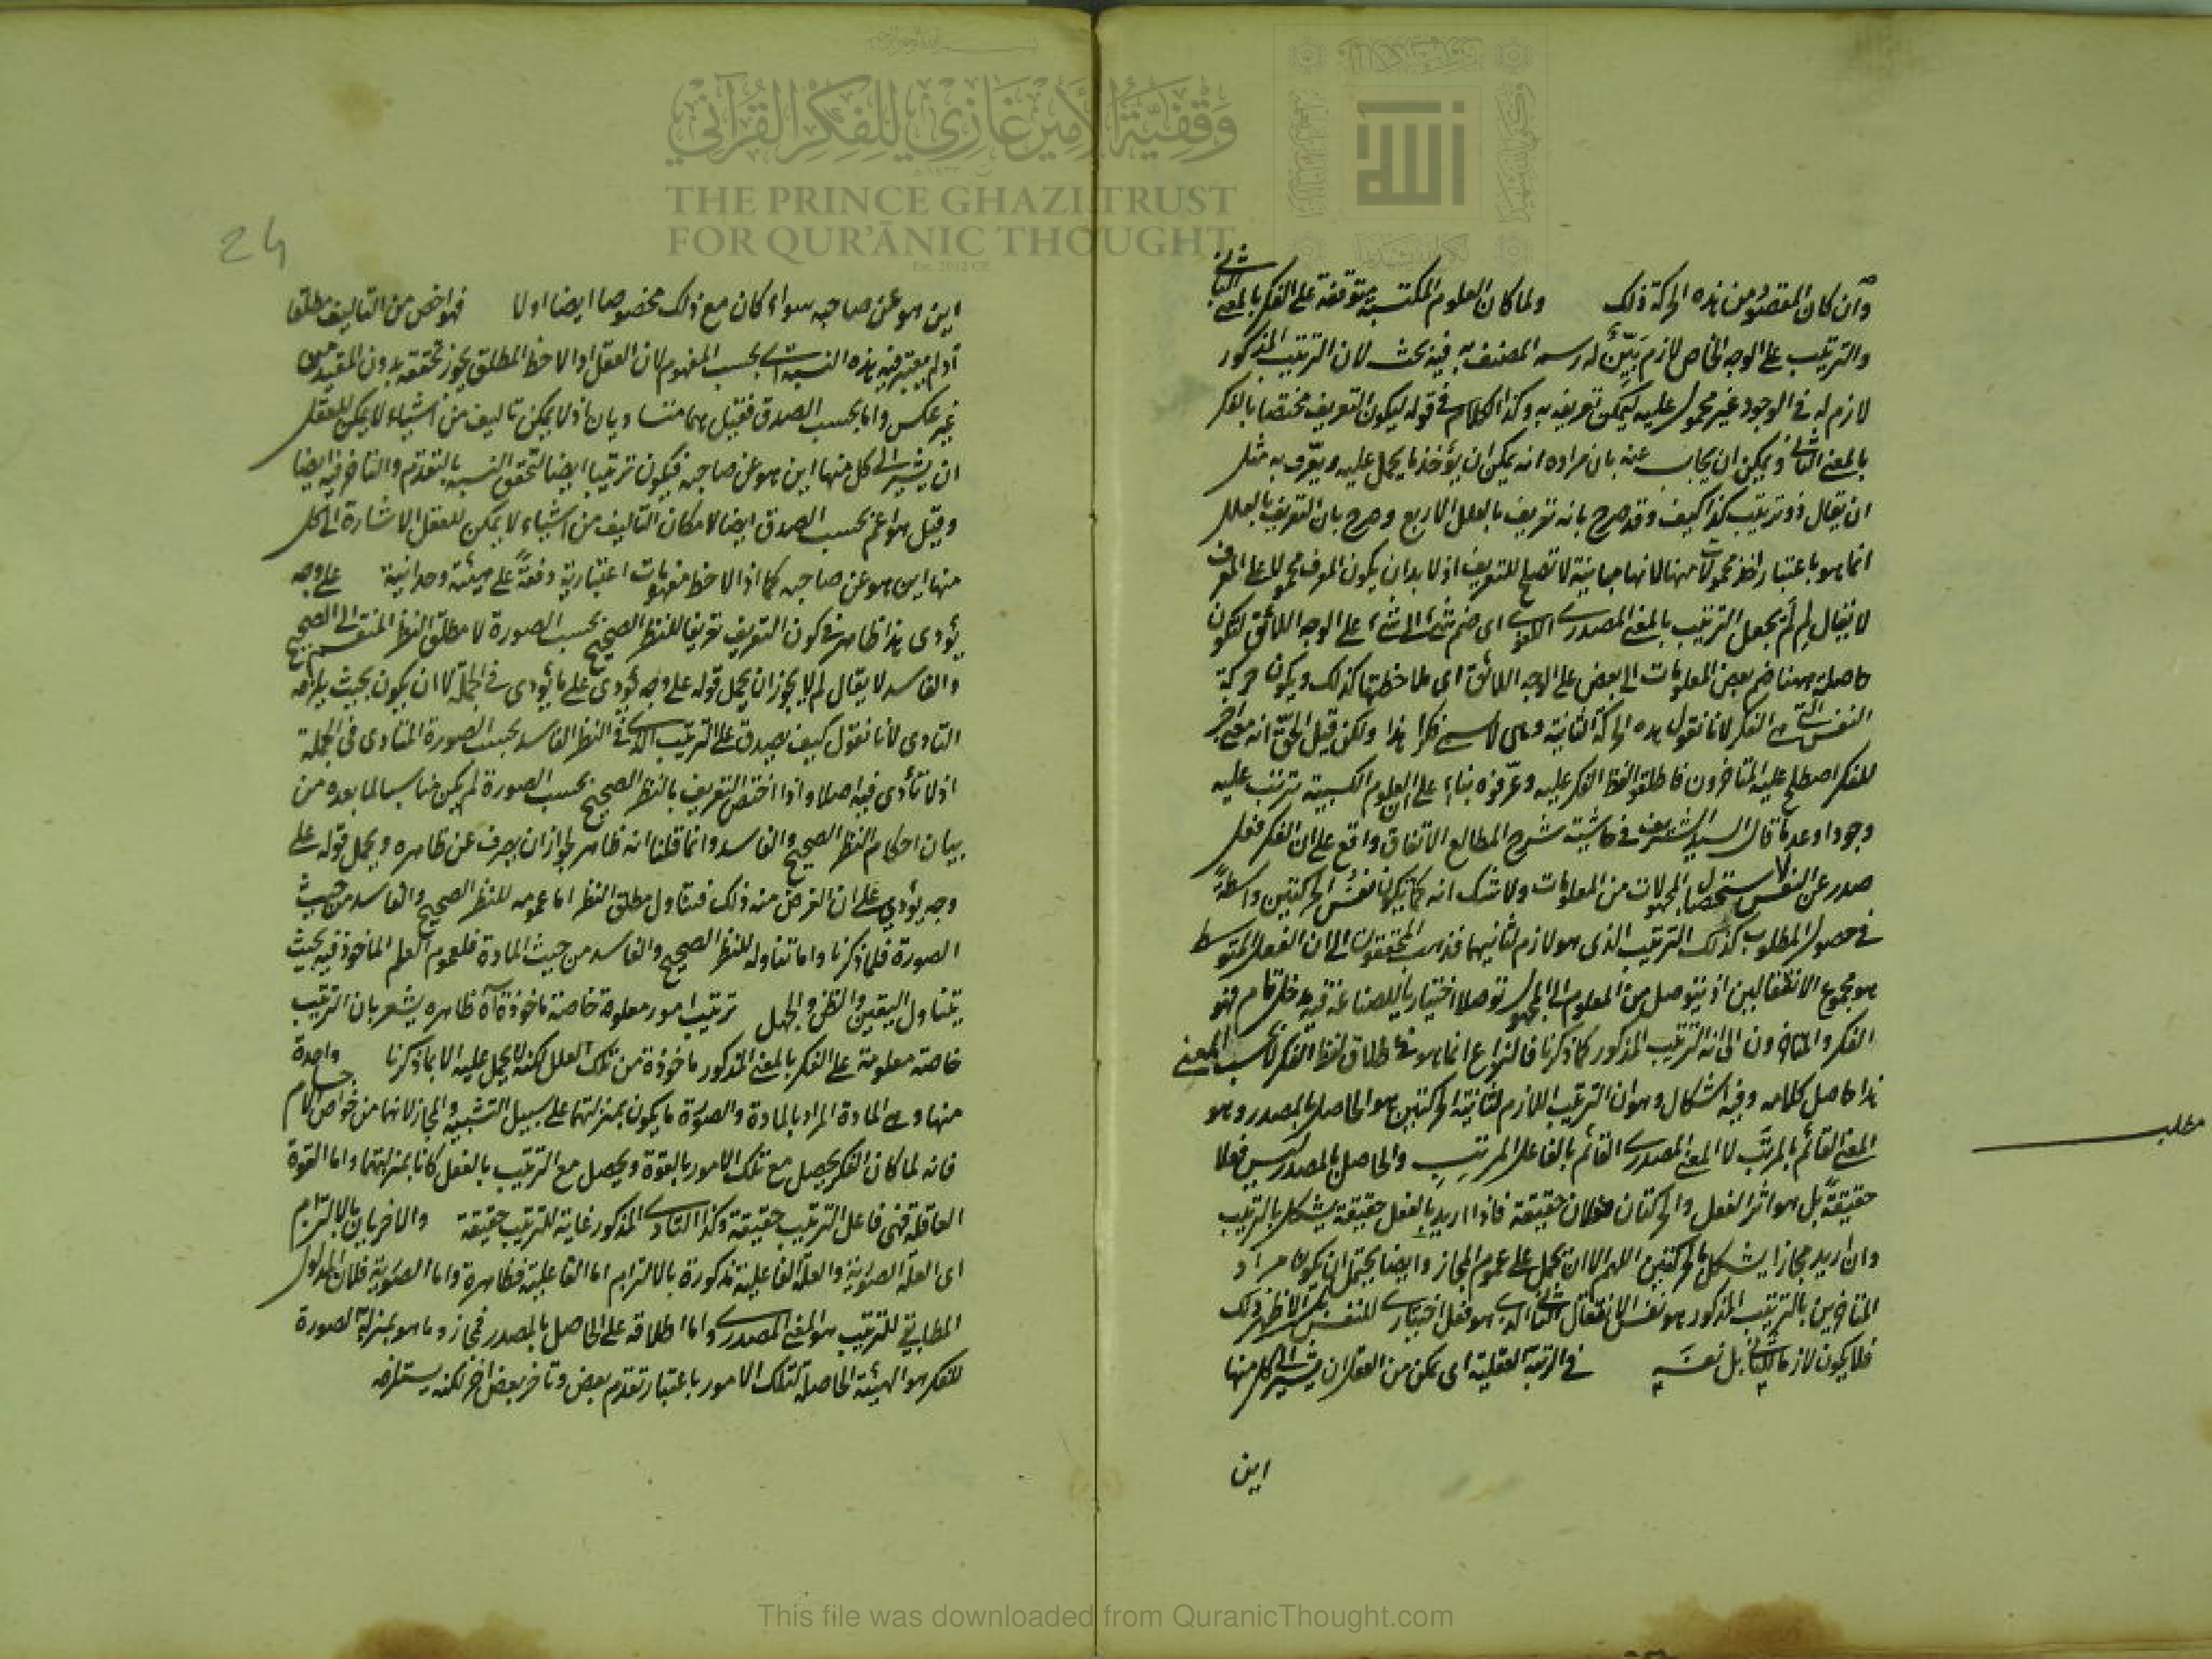 وان كان المقصود من هذه الحركة ذلك ولما كان العلوم المكتسبة متوقفة على الفكر بالمعنى الثاني
والترتيب على الوجه الخاص لازم بيّن له رسمه المصنف به فيه بحث لان الترتيب المذكور
لازم له في الوجود غير محمول عليه ليمكن تعريفه به وكذا الكلام في قوله ليكون التعريف مختصا بالفكر
بالمعنى الثاني ويمكن ان يجاب عنه بان مراده انه يمكن ان يؤخذ ما يحمل عليه ويعرّف به مثل
ان يقال ذو ترتيب كذا كيف وقد صرح بانه تعريف بالعلل الاربع وصرح بان التعريف بالعلل
انما هو باعتبار اخذ محمولات منها لانها مباينة لا تصلح للتعريف اذ لا بد ان يكون المعرف محمولا على المعرف
لا يقال لم لم يجعل الترتيب بالمعنى المصدري اللغوي اى ضم شئ الى شئ على الوجه اللائق ليكون
حاصله ههنا ضم بعض المعلومات الى بعض على الوجه اللائق اى ملاحظتها كذلك ويكون حركة
النفس التي هي الفكر لانا نقول هذه الحركة الثانية وهى لا يسمى فكرا هذا ولكن قيل الحق انه معنى آخر
للفكر اصطلح عليه المتاخرون فاطلقوا لفظ الفكر عليه وعرّفوه بناء على ان العلوم الكسبية ترتب عليه
وجودا وعدما قال السيد الشريف في حاشية شرح المطالع الاتفاق واقع على ان الفكر فعل
صدر عن النفس لاستحصال المجهولات من المعلومات ولا شك انه كما يكون نفس الحركتين واسطة
في حصول المطلوب كذلك الترتيب الذى هو لازم لثانيهما فذهب المحققون الى ان الفعل المتوسط
هو مجموع الانتقالين اذ يتوصل من المعلوم الى المجهول توصلا اختياريا للصناعة فيه مدخل تام فهو
الفكر والمتاخرون الى انه الترتيب المذكور كما ذكرنا فالنزاع انما هو في اطلاق لفظ الفكر لا بحسب المعنى
هذا حاصل كلامه وفيه اشكال وهو ان الترتيب اللازم لثانية الحركتين هو الحاصل بالمصدر وهو
المعنى القائم بالمرتَّب لا المعنى المصدري القائم بالفاعل المرتِب والحاصل بالمصدر ليس فعلا
حقيقة بل هو اثر الفعل والحركتان فعلان حقيقة فاذا اريد بالفعل حقيقة يشكل بالترتيب
وان اريد مجازا يشكل بالحركتين اللهم الا ان يحمل على عموم المجاز وايضا يحتمل ان يكون مراد
المتاخرين بالترتيب المذكور هو نفس الانتقال الثاني الذي هو فعل اختيارى للنفس ذلك
فلا يكون لازما للثاني بل نفسه في الرتبة العقلية اى يمكن من العقل ان يشير الى كل منها
اين
مطلب
24
اين هو عن صاحبه سواء كان مع ذلك مخصوصا ايضا اولا فهو اخص من التاليف مطلقا
اذ لم يعتبر فيه هذه النسبة اى بحسب المفهوم لان العقل اذا لاحظ المطلق يجوز تحققه بدون المقيد من
غير عكس واما بحسب الصدق فقيل هما متساويان اذ لا يمكن تاليف من اشياء لا يمكن للعقل
ان يشير الى كل منها اين هو عن صاحبه فيكون ترتيبا ايضا لتحقق النسبه بالتقدم والتاخر فيه ايضا
وقيل هو اعم بحسب الصدق ايضا لامكان التاليف من اشياء لا يمكن للعقل الاشارة الى كل
منها اين هو عن صاحبه كما اذا لاحظ مفهومات اعتبارية دفعة على هيئة وحدانية على وجه
يؤدى هذا ظاهر في كون التعريف تعريفا للنظر الصحيح بحسب الصورة لا مطلق النظر المنقسم الى الصحيح
والفاسد لا يقال لم لا يجوز ان يحمل قوله على وجه يؤدى على ما يؤدى في الجملة لا ان يكون بحيث يلزمه
التادى لانا نقول كيف يصدق على الترتيب الذى في النظر الفاسد بحسب الصورة التادى في الجملة
اذ لا تأدى فيه اصلا واذا اختص التعريف بالنظر الصحيح بحسب الصورة لم يكن مناسبا لما بعده من
بيان احكام النظر الصحيح والفاسد وانما قلنا انه ظاهر لجواز ان يصرف عن ظاهره ويحمل قوله على
وجه يؤدي على ان الغرض منه ذلك فتناول مطلق النظر اما عمومه للنظر الصحيح والفاسد من حيث
الصورة فلما ذكرنا واما تناوله للنظر الصحيح والفاسد من حيث المادة فلعموم العلم الماخوذ فيه بحيث
يتناول اليقين والظن والجهل ترتيب امور معلومة خاصة ماخوذة آه ظاهره يشعر بان الترتيب
خاصة معلومة على الفكر بالمعنى المذكور ماخوذة من تلك العلل لكنه لا يحمل عليه الا بما ذكرنا واحدة
منها وهى المادة المراد بالمادة والصورة ما يكون بمنزلتهما على سبيل التشبيه والمجاز لانها من خواص الاجسام
فانه لما كان الفكر يحصل مع تلك الامور بالقوة ويحصل مع الترتيب بالفعل كانا بمنزلتهما واما القوة
العاقلة فهي فاعل الترتيب حقيقة وكذا التادى المذكور غاية للترتيب حقيقة والاخريان بالالتزام
اى العلة الصورية والعلة الفاعلية مذكورة بالالتزام اما الفاعلية فظاهرة واما الصورية فلان المدلول
المطابقي للترتيب هو المعنى المصدري واما اطلاقه على الحاصل بالمصدر فمجاز وما هو بمنزلة الصورة
للفكر هو الهيئة الحاصلة لتلك الامور باعتبار تقدم بعض وتاخر بعض آخر لكنه يستلزمه
وَقْفِيَّةُ الأَمِيرْ غَازِي لِلْفِكْرِ القُرْآنِيِّ
THE PRINCE GHAZI TRUST
FOR QUR'ĀNIC THOUGHT
Est. 2012 CE
This file was downloaded from QuranicThought.com